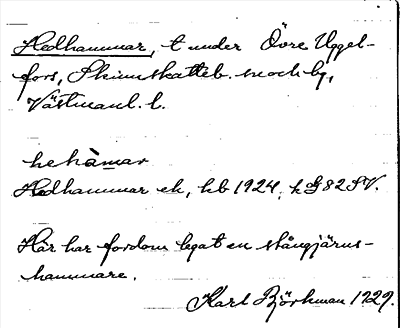 Hedhammar, t under Övre Uggel-
fors, Skinnskatteb. sn och bg,
Västmanl. l.
hehàmar
Hedhammar ek, hb 1924, k G 82 SV.
Här har fordom legat en stångjärns-
hammare.
Karl Björkman 1929.